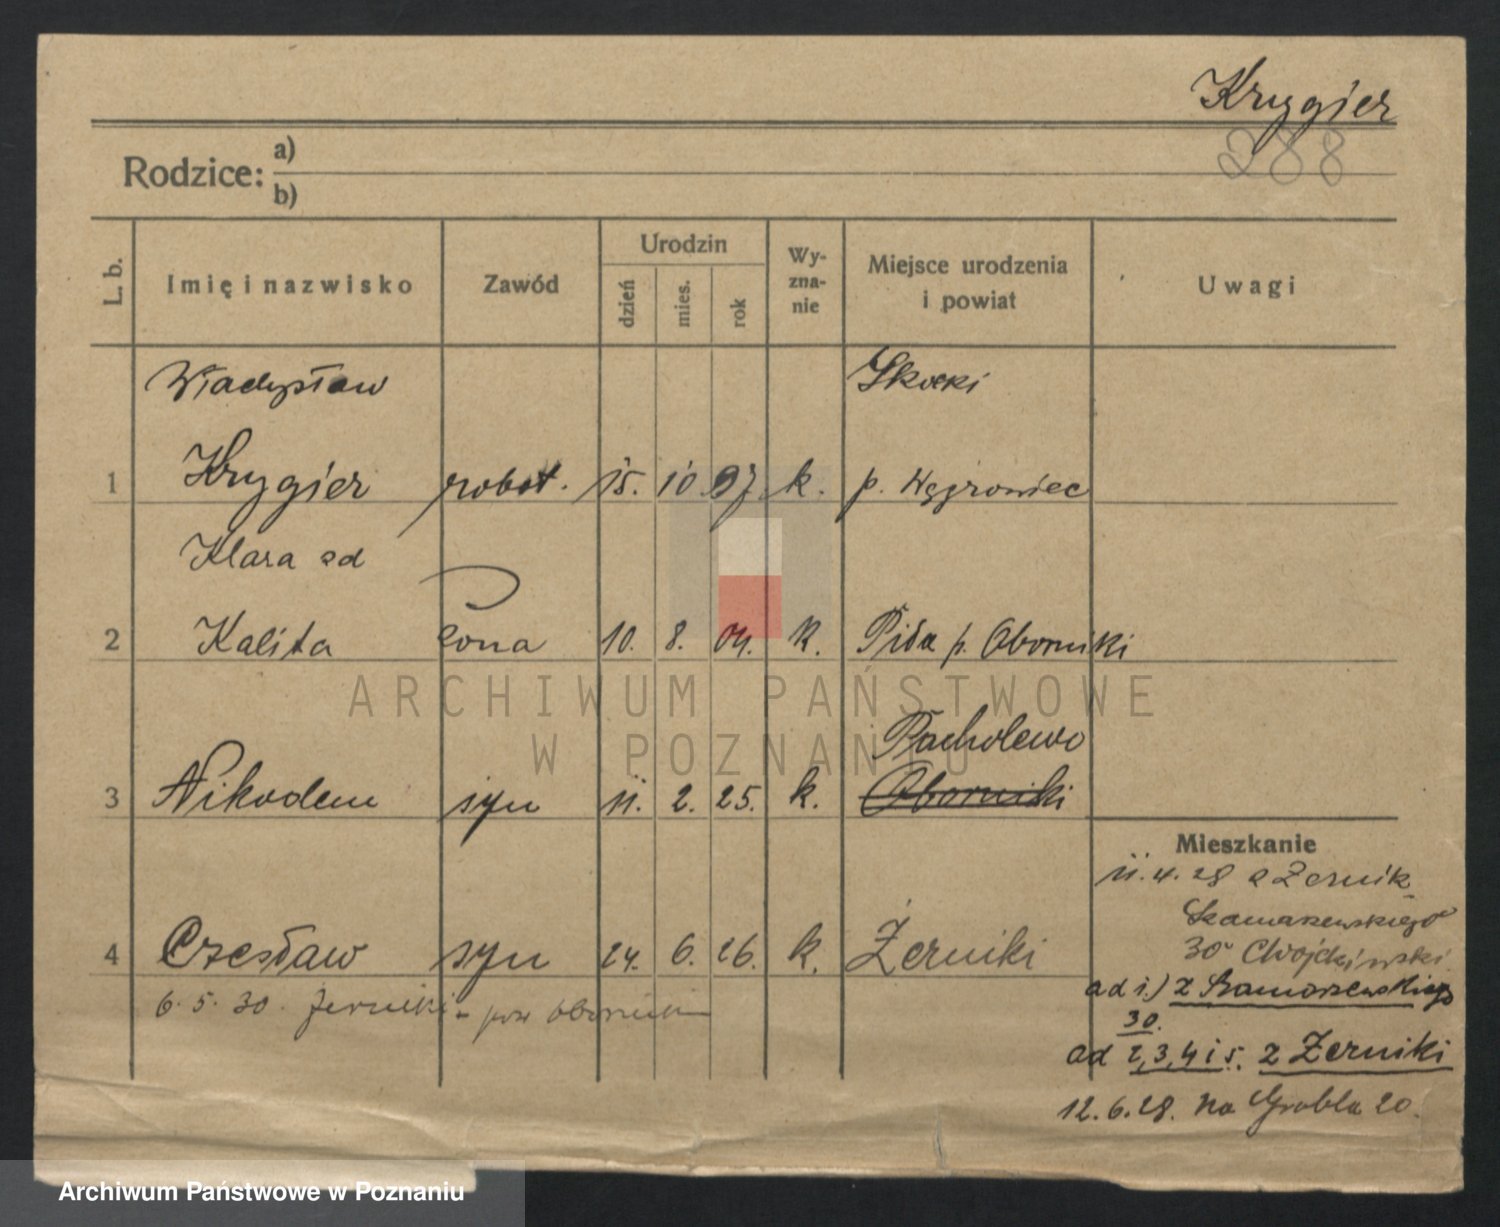 Krygier
288
Rodzice: a)
b)
L. b.
Imię i nazwisko
Zawód
Urodzin
dzień
mies.
rok
Wy-
zna-
nie
Miejsce urodzenia
i powiat
Uwagi
Władysław
Skoki
1 Krygier robot. 15. 10. 97. k. p. Wągrowiec
Klara od
2 Kalita żona 10. 8. 04. k. Piła p. Oborniki
Pacholewo
3 Nikodem syn 11. 2. 25. k. Oborniki
Mieszkanie
11. 4. 28 z Żernik
Szamarzewskiego
30
4 Czesław syn 24. 6. 26. k. Żerniki
ad 1.) z Szamarzewskiego
30.
6. 5. 30. Żerniki - pow Oborniki
ad 2, 3, 4 i 5. z Żerniki
12. 6. 28. Na Grobla 20.
ARCHIWUM PAŃSTWOWE
W POZNANIU
Archiwum Państwowe w Poznaniu